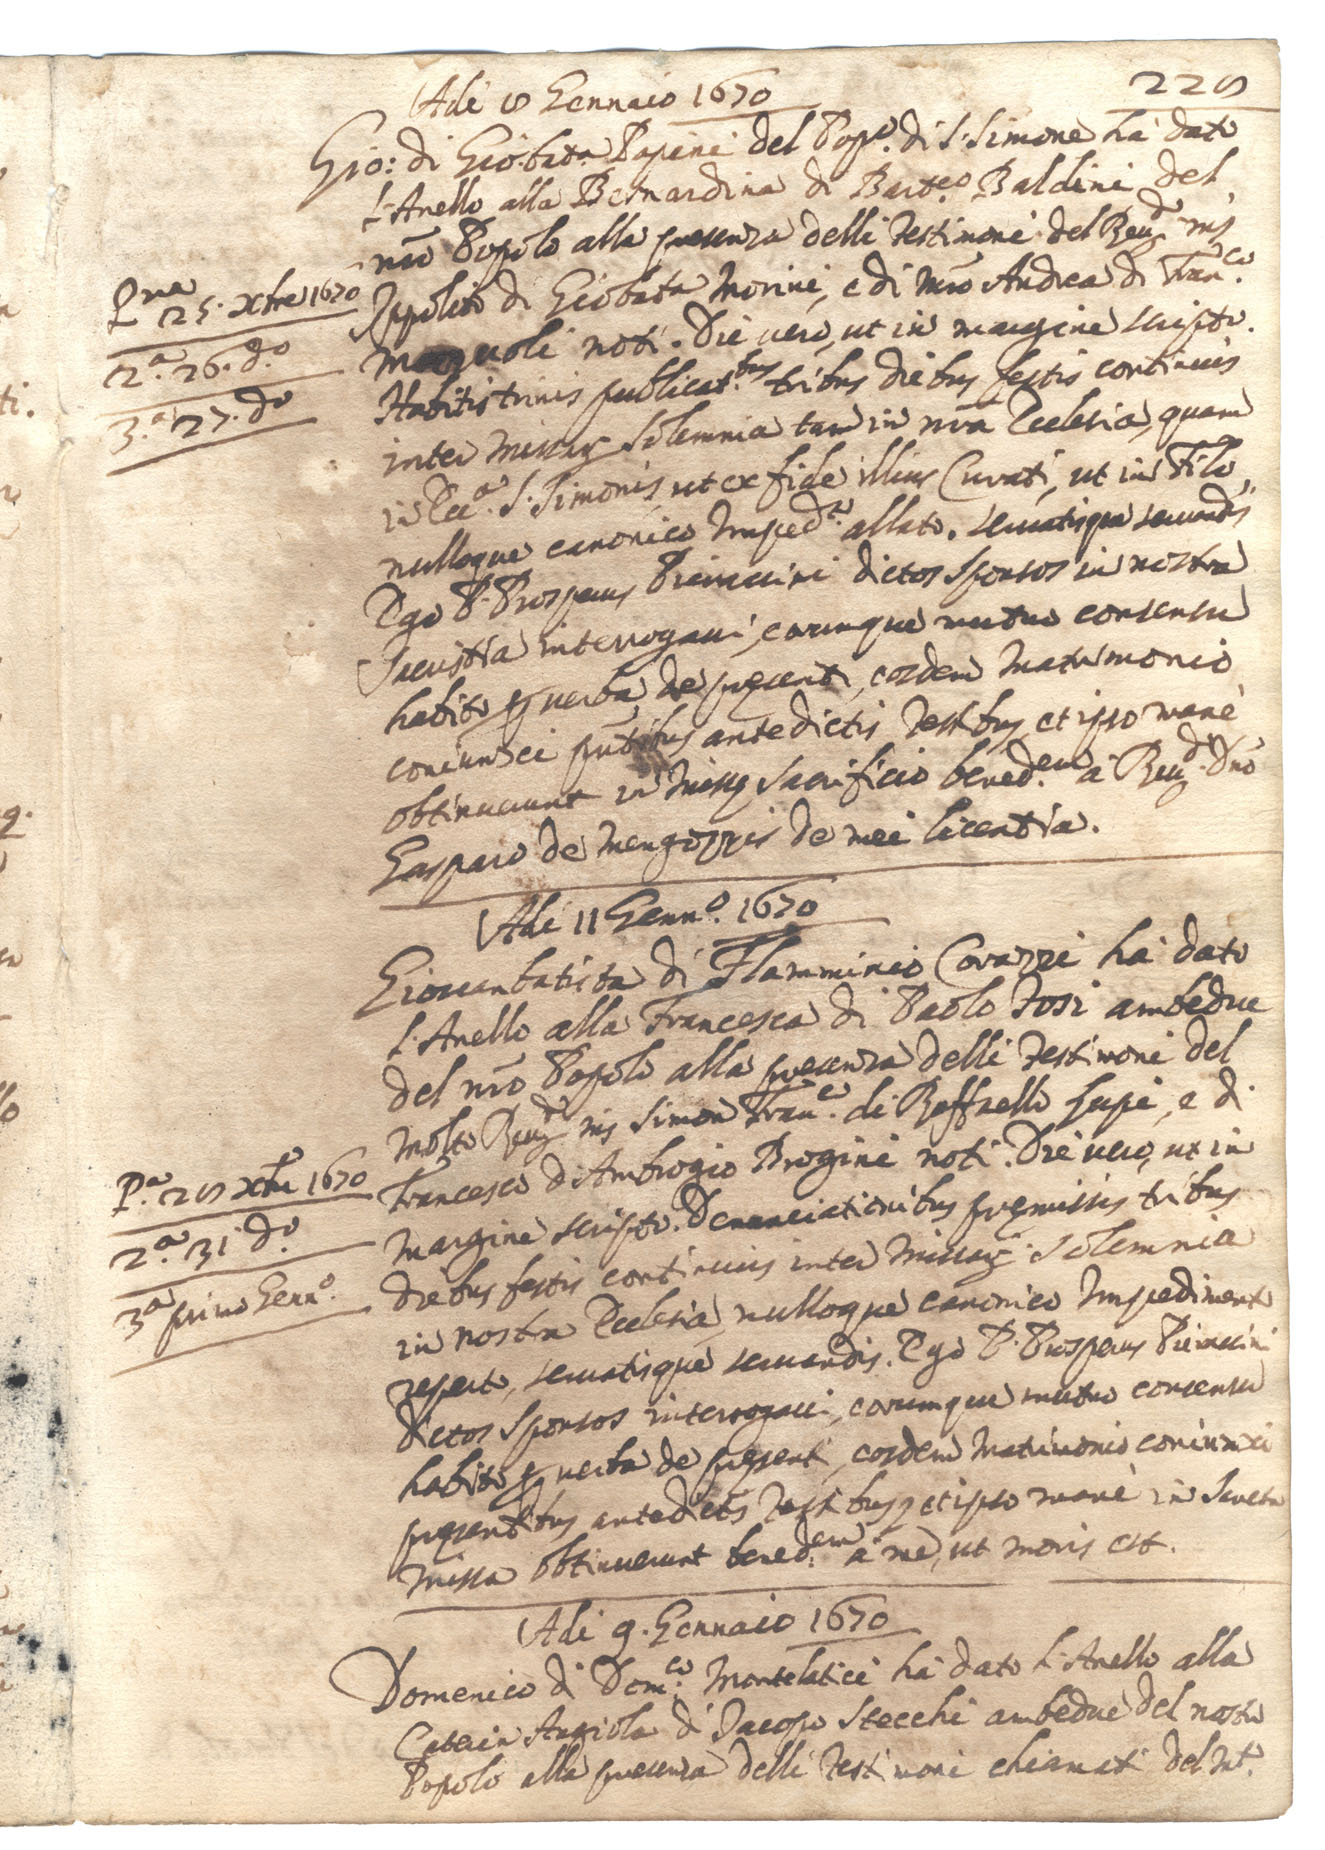 Adi 8 Gennaio 1670
228
Gio: di Gio:bata Papini del Popo. di S. Simone há dato
l'Anello alla Bernardina di Barteo. Baldini del
nro Popolo alla presenza delli Testimoni del Reud. mr
Ippolito di Giobata Morini, e di mro Andrea di Franco.
noti. Die vero, ut in margine scripto.
Habitis trinis publicat.bus tribus diebus festis continuis
inter Missarz solemnia tam in nra Ecclesia, quam
in Ecca. S. Simonis, ut ex fide illius Curati, ut in Filo,
nulloque canonico Imped.to allato, servatisque servandis
Ego P. Prosperus Pieraccini dictos sponsos in nostra
Sacristia interrogaui, eorumque mutuo consensu
habito p verba de presenti, eosdem Matrimonio
coniunxi pntibus antedictis Testibus, et ipso mane
obtinuerunt in Missę sacrificio bened.em á Reud. Dno
Gasparo de Mengozzis de mei licentia.
Pma 25. xbre 1670
2.a 26. do
3.a 27. do
Adi 11 Genno. 1670
Giouanbatista di Flamminio Corazzi há dato
l'Anello alla Francesca di Paolo Tosi ambedue
del nro Popolo alla presenza delli Testimoni del
Molto Reud mr Simon Franc. di Raffaello Lupi, e di
Francesco d'Ambrogio Brogini noti. Die vero, ut in
margine scripto. Denunciationibus premissis tribus
diebus festis continuis inter Missarz solemnia
in nostra Ecclesia, nulloque canonico Impedimento
reperto, seruatisque seruandis. Ego P. Prosperus Pieraccini
dictos sponsos interrogaui, eorumque mutuo consensu
habito p verba de presenti, eosdem Matrimonio coniunxi
presentibus antedictis Testibus, et ipso mane in
Missa obtinuerunt bened.em á me, ut moris est.
P.a 28 xbre 1670
2.a 31 do.
3.a primo Genno.
Adi 9. Gennaio 1670
Domenico di Domco. Montelatici há dato l'Anello alla
Caterin Angiola di Jacopo Stecchi ambedue del nostro
Popolo alla presenza delli Testimoni chiamati del Mto.